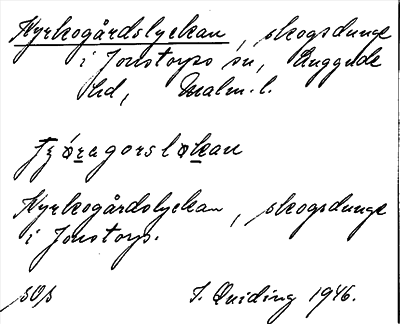 Kyrkogårdslyckan, skogsdunge
i Jonstorps sn, Luggude
hd, Malm. l.
Kyrkogårdslyckan, skogsdunge
i Jonstorp.
SOS I. Quiding 1946.